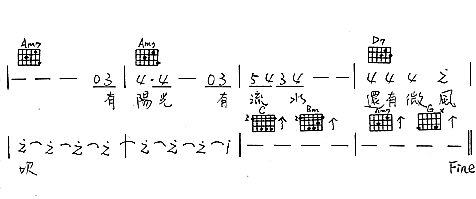 Am7 Am7 D7
| — — — 0 3 | 4 · 4 — 0 3 | 5 4 3 4 — — | 4 4 4 2̇ |
有 陽 光 有 流 水 還 有 微 風
C Bm Am7 G
| 2̇ 2̇ 2̇ 2̇ | 2̇ 2̇ 2̇ i | — — — — | — — — — ||
吹 Fine